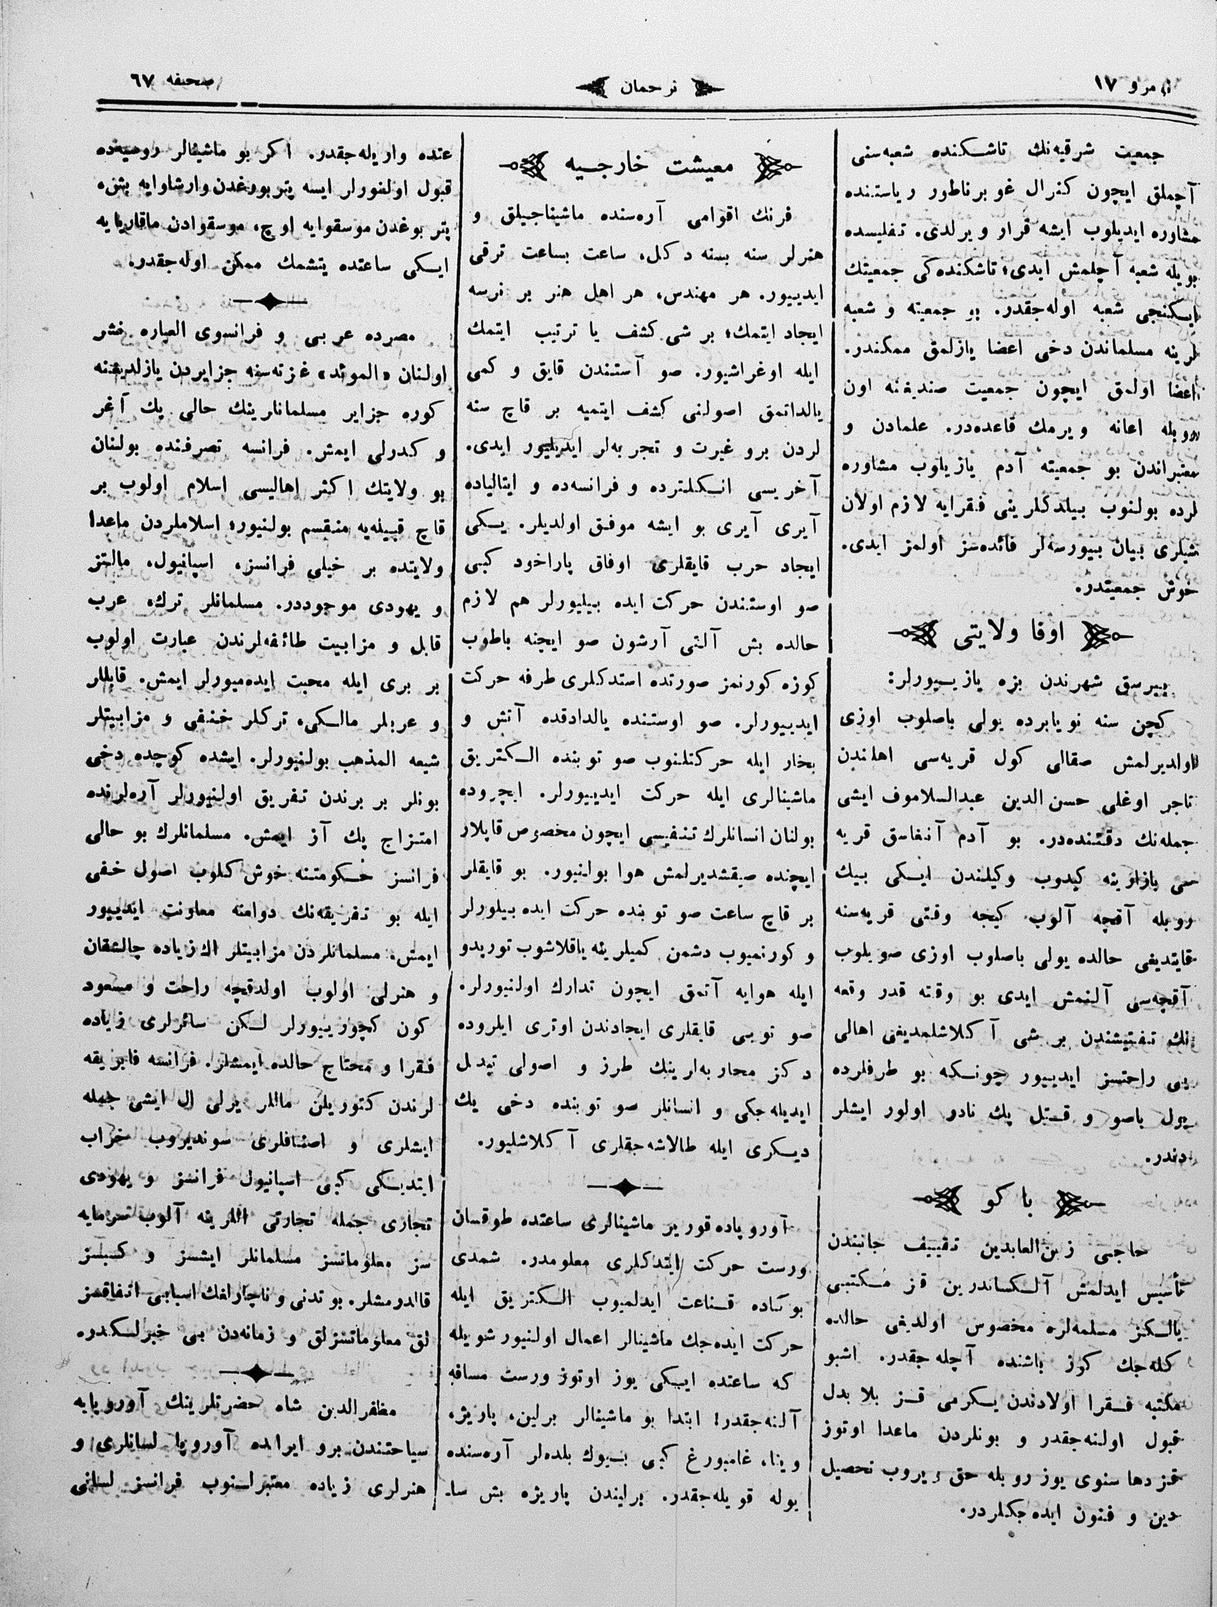 نومرو ١٧
ترجمان
صحیفه ٦٧
جمعیت شرقیه‌نك تاشكنده شعبه‌سنی
آچملق ایچون كنرال غوبرناطور ریاستنده
مشاوره ایدیلوب ایشه قرار ویرلدی. تفلیسده
بویله شعبه آچلمش ایدی؛ تاشكنده‌كی جمعیتك
ایكنجی شعبه اوله‌جقدر. بو جمعیته و شعبه
لرینه مسلماندن دخی اعضا یازلمق ممكندر.
اعضا اولمق ایچون جمعیت صندیغنه اون
روبله اعانه ویرمك قاعده‌در. علمادن و
معتبراندن بو جمعیته آدم یازیلوب مشاوره
لرده بولنوب بیلدكلرینی فقرایه لازم اولان
شیلری بیان بیورسه‌لر فائده‌سز اولمز ایدی.
خوش جمعیتدر.
اوفا ولایتی
بیرسق شهرندن بزه یازییورلر:
كچن سنه نویابرده یولی باصلوب اوزی
اولدیرلمش صقالی كول قریه‌سی اهلندن
تاجر اوغلی حسن الدین عبدالسلاموف ایشی
جمله‌نك دقتنده‌در. بو آدم آنغاسق قریه
سی بازارینه كیدوب وكیلندن ایكی بیك
روبله آقچه آلوب كیجه وقتی قریه‌سنه
قایتدیغی حالده یولی باصلوب اوزی صویلوب
آقچه‌سی آلنمش ایدی بو وقته قدر وقعه
نك تفتیشندن بر شی آكلاشلمدیغی اهالی
یی راحتسز ایدییور چونكه بو طرفلرده
یول باصو و قتل پك نادر اولور ایشلر
دندر.
باكو
حاجی زین‌العابدین تقییف جانبندن
تأسیس ایدلمش آلكساندرین قز مكتبی
یالكز مسلمه‌لره مخصوص اولدیغی حالده
كله‌جك كوز باشنده آچله‌جقدر. اشبو
مكتبه فقرا اولادندن یكرمی قز بلا بدل
قبول اولنه‌جقدر و بونلردن ماعدا اوتوز
قزدها سنوی یوز روبله حق ویروب تحصیل
دین و فنون ایده‌جكلردر.
معیشت خارجیه
فرنك اقوامی آره‌سنده ماشیناجیلق و
هنرلر سنه بسنه دكل، ساعت بساعت ترقی
ایدییور. هر مهندس، هر اهل هنر بر نرسه
ایجاد ایتمك؛ بر شی كشف یا ترتیب ایتمك
ایله اوغراشیور. صو آستندن قایق و كمی
یالداتمق اصولنی كشف ایتمیه بر قاچ سنه
لردن برو غیرت و تجربه‌لر ایدیلیور ایدی.
آخریسی انكلترده و فرانسه‌ده و ایتالیاده
آیری آیری بو ایشه موفق اولدیلر. یكی
ایجاد حرب قایقلری اوفاق پاراخود كبی
صو اوستندن حركت ایده بیلیورلر هم لازم
حالده بش آلتی آرشون صو ایچنه باطوب
كوزه كورنمز صورتده استدكلری طرفه حركت
ایدییورلر. صو اوستنده یالدادقده آتش و
بخار ایله حركتلنوب صو توبنده الكتریق
ماشینالری ایله حركت ایدییورلر. ایچروده
بولنان انسانلرك تنفیسی ایچون مخصوص قاپلار
ایچنده صیقشدیرلمش هوا بولنیور. بو قایقلر
بر قاچ ساعت صو توبنده حركت ایده بیلورلر
و كورنمیوب دشمن كمیلرینه یاقلاشوب توریدو
ایله هوایه آتمق ایچون تدارك اولنیورلر.
صو توبی قایقلری ایجادندن اوتری ایلروده
دكز محاربه‌لرینك طرز و اصولی تبدل
ایدیله‌جكی و انسانلر صو توبنده دخی یك
دیكری ایله طالاشه‌جقلری آكلاشلیور.
آوروپاده قوریر ماشینالری ساعتده طوقسان
ورست حركت ایتدكلری معلومدر. شمدی
بوكاده قناعت ایدلمیوب الكتریق ایله
حركت ایده‌جك ماشینالر اعمال اولنیور شویله
كه ساعتده ایكی یوز اوتوز ورست مسافه
آلنه‌جقدر! ابتدا بو ماشینالر برلین، پاریژ،
وینا، غامبورغ كبی بیوك بلده‌لر آره‌سنده
یوله قویله‌جقدر. برلیندن پاریژه بش سا-
عتده واریله‌جقدر. اكر بو ماشینالر روسیه‌ده
قبول اولنورلر ایسه پتربورغدن وارشاوایه بش،
پتربوغدن موسقوایه اوچ، موسقوادن ماقاریایه
ایكی ساعتده یتشمك ممكن اوله‌جقدر.
مصرده عربی و فرانسوی العباره نشر
اولنان «المؤید» غزته‌سنه جزایردن یازلدیغنه
كوره جزایر مسلمانلرینك حالی پك آغر
و كدرلی ایمش. فرانسه تصرفنده بولنان
بو ولایتك اكثر اهالیسی اسلام اولوب بر
قاچ قبیله‌یه منقسم بولنیور؛ اسلاملردن ماعدا
ولایتده بر خیلی فرانسز، اسپانیول، مالتز
و یهودی موجوددر. مسلمانلر ترك، عرب
قابل و مزابیت طائفه‌لرندن عبارت اولوب
بر بری ایله محبت ایده‌میورلر ایمش. قابللر
و عربلر مالكی، تركلر حنفی و مزابیتلر
شیعه المذهب بولنیورلر. ایشده كوچده دخی
بونلر بر برندن تفریق اولنیورلر آره‌لرنده
امتزاج پك آز ایمش. مسلمانلرك بو حالی
فرانسز حكومتنه خوش كلوب اصول خفی
ایله بو تفریقه‌نك دوامنه معاونت ایدییور
ایمش. مسلمانلردن مزابیتلر اك زیاده چالشقان
و هنرلی اولوب اولدقچه راحت و مسعود
كون كچوریبورلر لكن سائرلری زیاده
فقرا و محتاج حالده ایمشلر. فرانسه فابریقه
لرندن كتوریلن ماللر یرلی ال ایشی جمله
ایشلری و اصنافلری سوندیروب خراب
ایتدیكی كبی اسپانیول فرانسز و یهودی
تجاری جمله تجارتی اللرینه آلوب سرمایه
سز معلوماتسز مسلمانلر ایشسز و كسبسز
قالدرمشلر. بو تدنی و ناچارلغك اسبابی اتفاقسز
لق معلوماتسزلق و زمانه‌دن بی خبرلكدر.
مظفرالدین شاه حضرتلرینك آوروپایه
سیاحتندن برو ایرانده آوروپا لسانلری و
هنرلری زیاده معتبرلنوب فرانسز لسانی